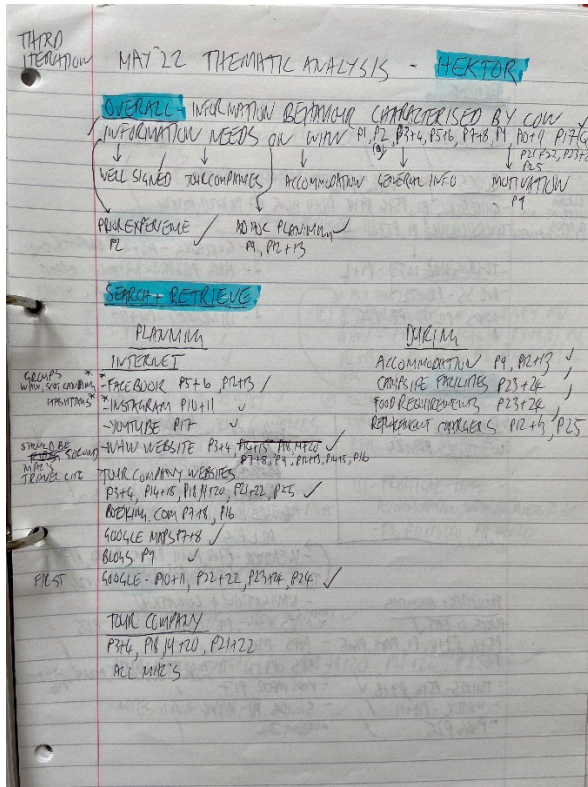 THIRD
ITERATION
MAY '22 THEMATIC ANALYSIS - HEKTOR
OVERALL - INFORMATION BEHAVIOUR CHARACTERISED BY LOW
INFORMATION NEEDS ON WHW P1, P2, P3+4, P5+6, P7+8, P9, P10+11, P17
P21+22, P23+24
P25
WELL SIGNED TOUR COMPANIES ACCOMMODATION GENERAL INFO MOTIVATION
P9
PRIOR EXPERIENCE AD HOC PLANNING
P2 P9, P12+13
SEARCH + RETRIEVE
PLANNING
INTERNET
GROUPS
WHW, SCOT CAMPING
- FACEBOOK P5+6, P12+13
HASHTAGS
- INSTAGRAM P10+11
- YOUTUBE P17
SHOULD BE SECOND
MHZ'S
TRAVEL LITE
- WHW WEBSITE P3+4, P14+15, P18, 19+20
P7+8, P9, P12+13, P14+15, P16
TOUR COMPANY WEBSITES
P3+4, P14+15, P18, 19+20, P21+22, P25
BOOKING.COM P7+8, P16
GOOGLE MAPS P7+8
BLOGS P9
FIRST
GOOGLE - P10+11, P22+22, P23+24, P24
TOUR COMPANY
P3+4, P18, 19+20, P21+22
ALL MHZ'S
DURING
ACCOMMODATION P9, P12+13
CAMPSITE FACILITIES P23+24
FOOD REQUIREMENTS P23+24
REPLACEMENT CHARGERS P12+13, P25